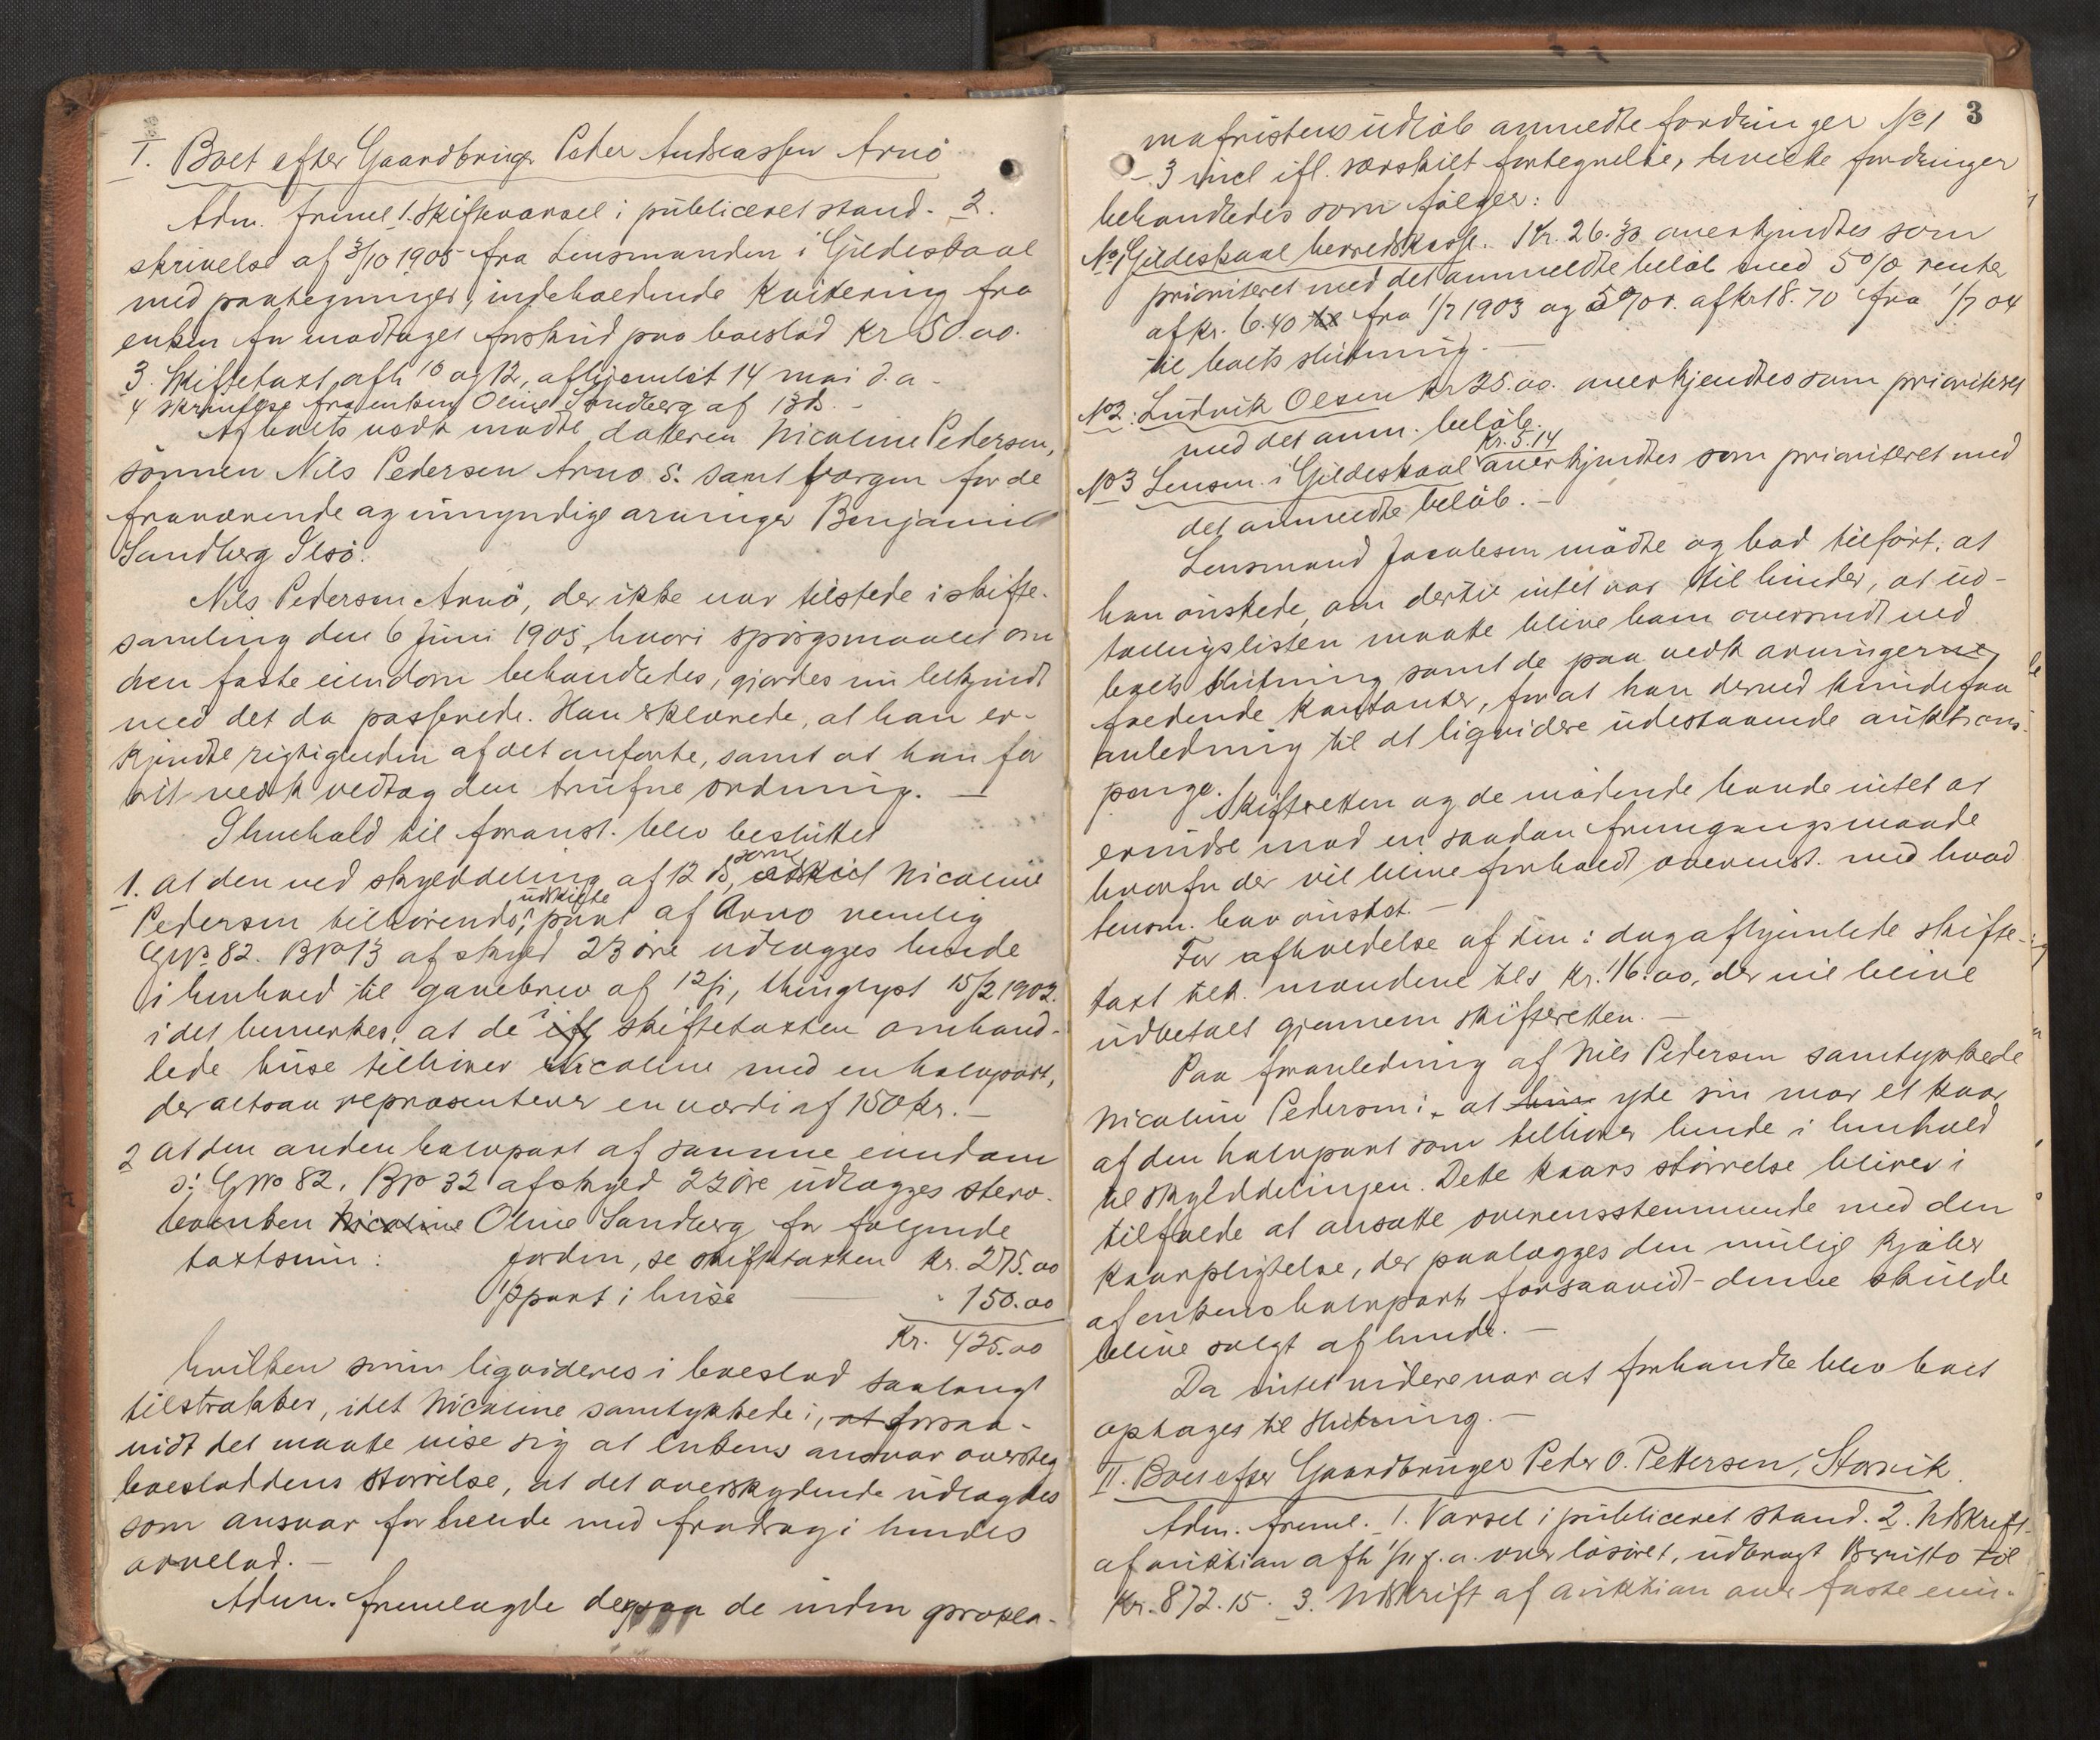 I. Boet efter Gaardbruger Peder Andreassen Arnö
Adm. freml 1. Skiftevarsel i publiceret stand. 2.
skrivelse af 3/10 1905 fra Lensmanden i Gildeskaal
med paategninger, indeholdende Kvitering fra
enken for modtaget forskud paa boeslod Kr 50.00.
3. Skiftetaxt afh 10 og 12, afhjemlet 14 mai d.a.
4 skrivelse fra enken Oline Sandberg af 13 ds.
Af boets vedk mødte datteren Nicoline Pedersen,
sönnen Nils Pedersen Arnö s: samt værgen for de
fraværende og umyndige arvinger Benjamin
Sandberg Ilsö.
Nils Pedersen Arnö, der ikke var tilstede i skifte-
samling den 6 Juni 1905, hvori spörgsmaalet om
den faste eiendom behandledes, gjordes nu bekjendt
med det da passerede. Han erklærede, at han er-
kjendte rigtigheden af det anförte, samt at han for
sit vedk vedtog den trufne ordning. —
I henhold til foranst. blev besluttet
1. at den ved skylddeling af 12 ds, som Nicoline
Pedersen tilhörende, udskilte part af Arnö nemlig
GNo 82. BNo 13 af skyld 23 öre udlægges hende
i henhold til gavebrev af 12/1, thinglyst 15/2 1902.
idet bemerkes: at de i skiftetaxten omhand-
lede huse tilhörer Nicoline med en halvpart,
der altsaa repræsenterer en værdi af 150 kr. —
2 at den anden halvpart af samme eiendom
s: GNo 82, BNo 32 af skyld 22 öre udlægges sterv-
boenken Nicoline Oline Sandberg for fölgende
taxtsum: Jorden, se skiftetaxten Kr. 275.00
1/2 part i huse — " 150.00
Kr. 425.00
hvilken sum likvideres i boeslod saalangt
tilstrækker, idet Nicoline samtykkede i, at forsaa-
vidt det maatte vise sig at enkens ansvar oversteg
boesloddens störrelse, at det overskydende udlagdes
som ansvar for hende med fradrag i hendes
arvelod. —
Adm. fremlagde derpaa de inden prokla-
3
mafristens udlöb anmeldte fordringer No 1
- 3 incl ifl. særskilt fortegnelse, hvilke fordringer
behandledes som fölger:
No 1 Gildeskaal herredskasse. Kr. 26.30 anerkjendtes som
prioriteret med det anmeldte belöb med 5% renter
af kr. 6.40 til fra 1/7 1903 og 5% r. af kr 18.70 fra 1/7 04
til boets slutning. —
No 2: Ludvik Olsen Kr 25.00. anerkjendtes som prioriteret
med det anm. belöb.
No 3 Lensm. i Gildeskaal Kr. 5.14 anerkjendtes som prioriteret med
det anmeldte belöb. —
Lensmand Jacobsen mödte og bad tilfört, at
han önskede, om dertil intet var til hinder, at ud-
lodningslisten maatte blive ham oversendt ved
boets slutning samt de paa vedk arvingerne
faldende kontanter, for at han derved kunde faa
anledning til at liqvidere udestaaende auktions-
penge. Skifteretten og de mödende havde intet at
erindre mod en saadan fremgangsmaade
hvorfor der vil blive forholdt overenst. med hvad
lensm. har önsket. —
For afholdelse af den i dag afhjemlede skifte-
taxt tilk. mændene tils Kr. 16.00, der vil blive
udbetalt gjennem skifteretten. —
Paa foranledning af Nils Pedersen samtykkede
Nicoline Pedersen i at yde sin mor et kaar
af den halvpart som tilhörer hende i henhold
til skylddelingen. Dette kaars störrelse bliver i
tilfælde at ansætte overensstemmende med den
kaarpligtelse, der paalægges den mulige kjöber
af enkens halvpart forsaavidt denne skulde
blive solgt af hende. —
Da intet videre var at forhandle blev boet
optaget til slutning. —
II. Boet efter Gaardbruger Peder O. Pettersen, Storvik.
Adm. freml. 1. Varsel i publiceret stand. 2. Udskrift
af auktion afh 1/11 f.a. over lösöret, udbragt Brutto til
Kr. 872.15. 3. Udskrift af auktion over faste eien-